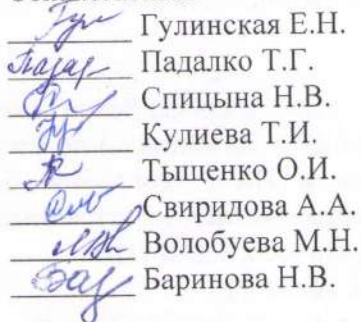 Гулинская Е.Н.
Падалко Т.Г.
Спицына Н.В.
Кулиева Т.И.
Тыщенко О.И.
Свиридова А.А.
Волобуева М.Н.
Баринова Н.В.